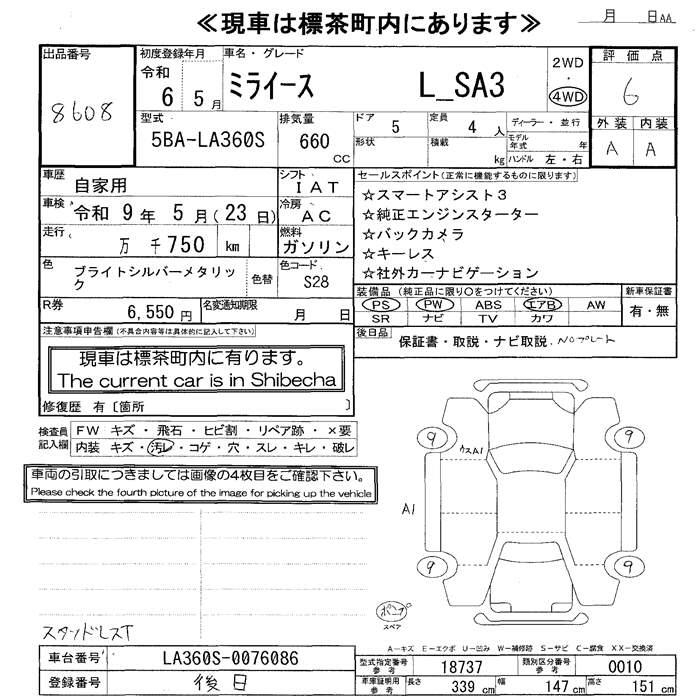 ≪現車は標茶町内にあります≫
月 日AA
出品番号
8608
初度登録年月
令和
6 5月
車名・グレード
ミライース L_SA3
2WD
・
4WD
評価点
6
外装 内装
A A
型式
5BA-LA360S
排気量
660
cc
ドア
5
定員
4 人
形状
積載
kg
ディーラー・並行
モデル
年式 年
ハンドル 左・右
車歴
自家用
シフト
IAT
車検
令和 9年 5月(23日)
冷房
AC
走行
万 千750 km
燃料
ガソリン
色
ブライトシルバーメタリッ
ク
色替
色コード
S28
R券
6,550円
名変通知期限
月 日
セールスポイント(正常に機能するものに限ります)
☆スマートアシスト3
☆純正エンジンスターター
☆バックカメラ
☆キーレス
☆社外カーナビゲーション
装備品(純正品に限り○をつけてください)
PS PW ABS エアB AW
SR ナビ TV カワ
新車保証書
有・無
後日品
保証書・取説・ナビ取説、Noプレート
注意事項申告欄(不具合内容等は具体的に記入して下さい)
現車は標茶町内に有ります。
The current car is in Shibecha
修復歴 有〔箇所 〕
検査員
記入欄
FW キズ・飛石・ヒビ割・リペア跡・×要
内装 キズ・汚レ・コゲ・穴・スレ・キレ・破レ
車両の引取につきましては画像の4枚目をご確認下さい。
Please check the fourth picture of the image for picking up the vehicle
9 9
ウスA1
A1
9 9
ポンプ
スペア
スタッドレスT
A-キズ E-エクボ U-凹み W-補修跡 S-サビ C-腐食 XX-交換済
車台番号
LA360S-0076086
登録番号
後日
型式指定番号
参考
18737
類別区分番号
参考
0010
車庫証明用
参考
長さ
339 cm
幅
147 cm
高さ
151 cm